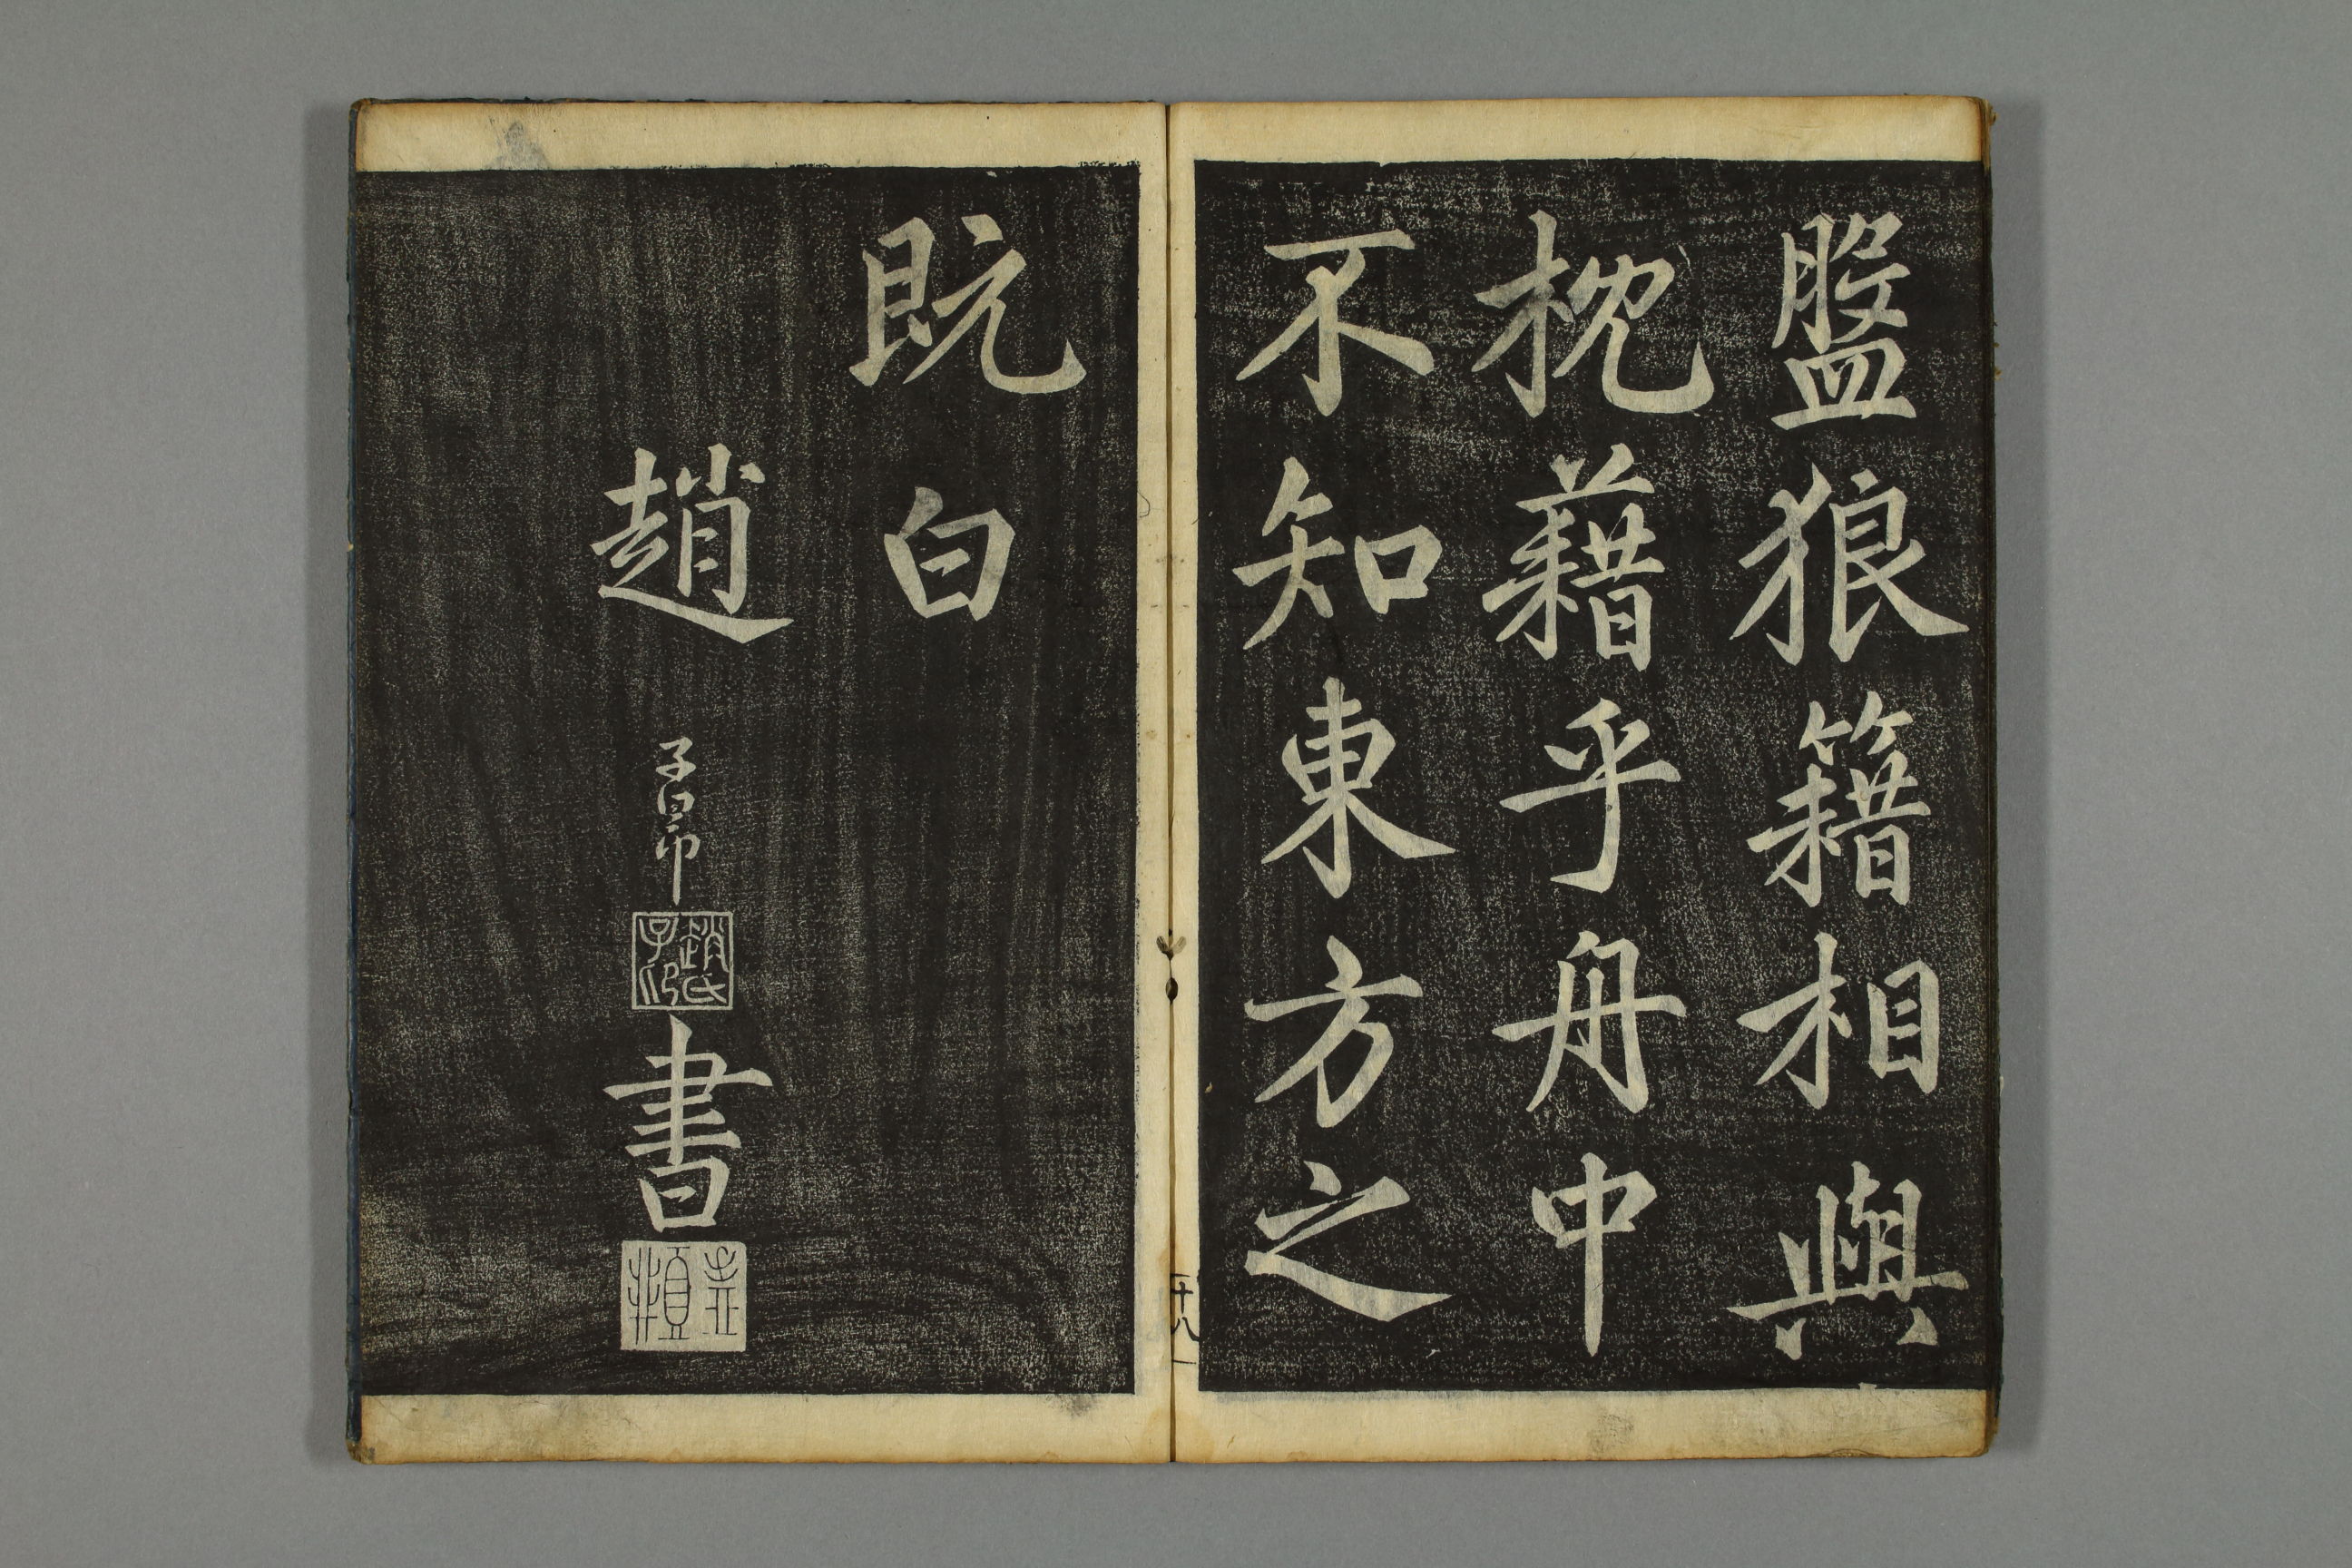 盤狼籍相與
枕藉乎舟中
不知東方之
既白
趙
子昂
趙氏子昂
書
十八